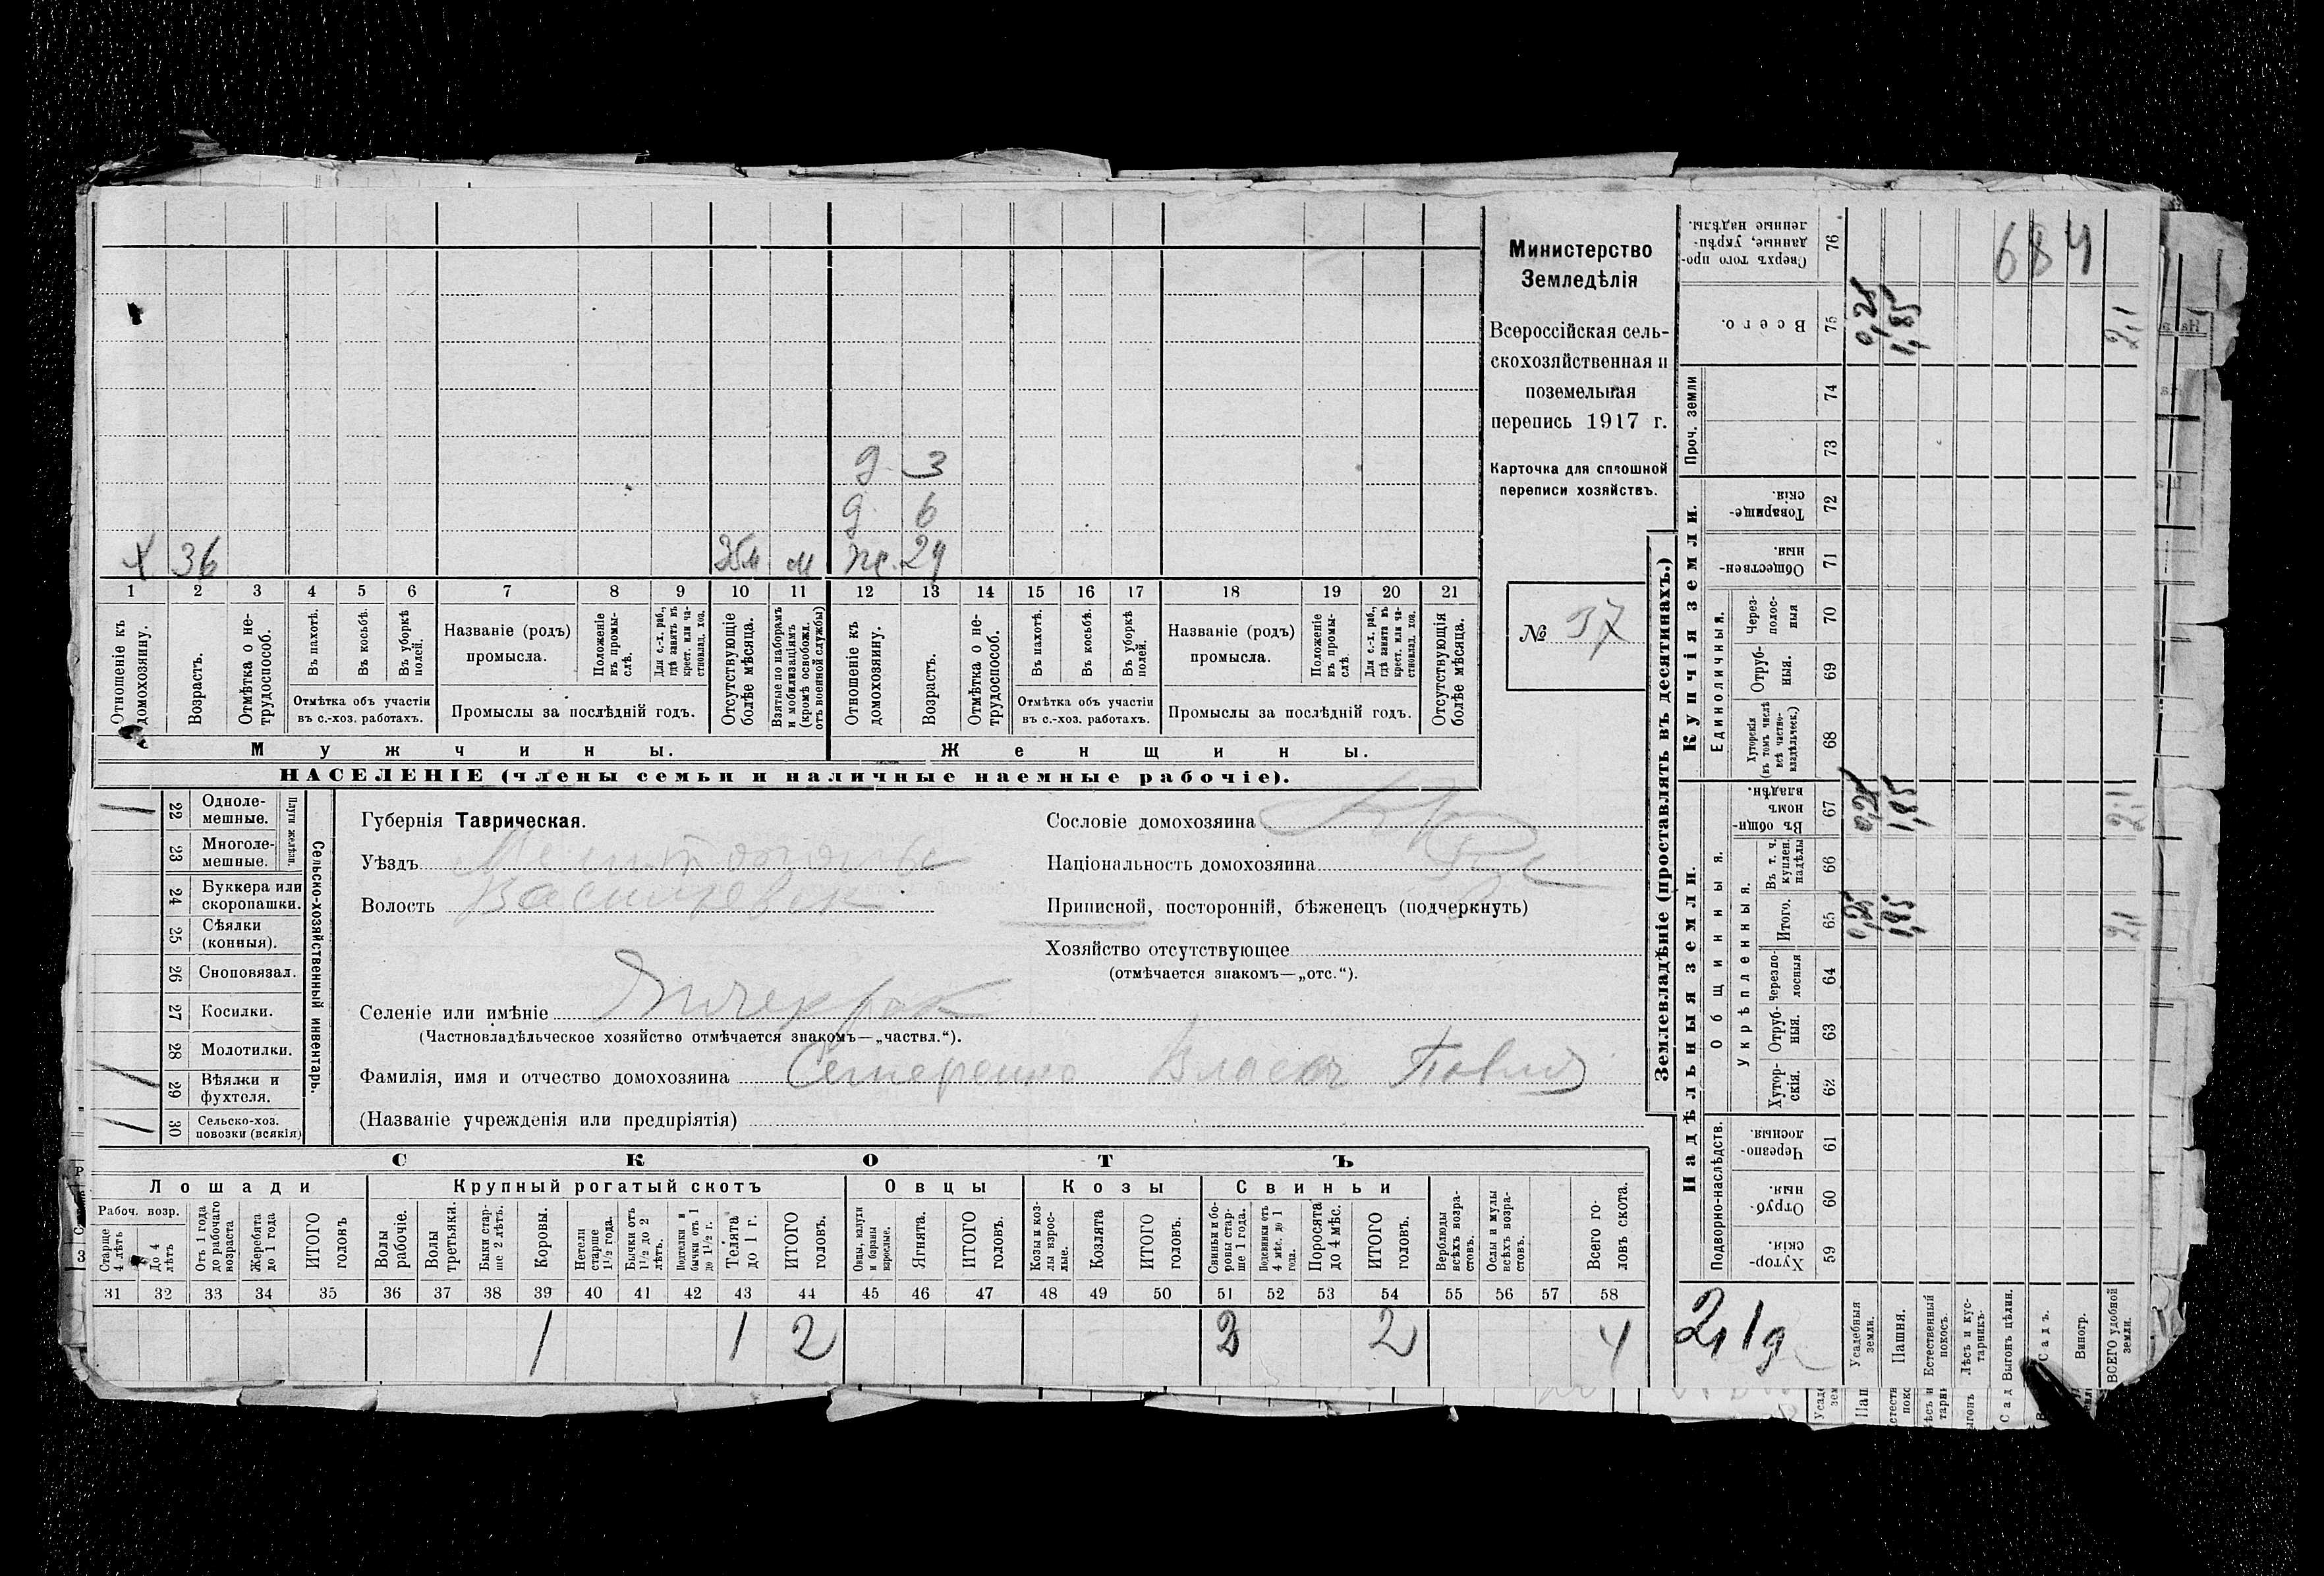 х 36 35м м ж. 29
д 6
д. 3
1 2 3 4 5 6 7 8 9 10 11 12 13 14 15 16 17 18 19 20 21
Отношеніе къ домохозяину.
Возрастъ.
Отмѣтка о не-трудоспособ.
Въ пахотѣ.
Въ косьбѣ.
Въ уборкѣ полей.
Отмѣтка объ участіи въ с.-хоз. работахъ.
Названіе (родъ) промысла.
Положеніе въ промы-слѣ.
Для с.-х. раб., гдѣ занятъ въ крест. или ча-стновлад. хоз.
Промыслы за послѣдній годъ.
Отсутствующіе болѣе мѣсяца.
Взятые по наборамъ и мобилизаціямъ (кромѣ освобожд. отъ военной службы)
Отношеніе къ домохозяину.
Возрастъ.
Отмѣтка о не-трудоспособ.
Въ пахотѣ.
Въ косьбѣ.
Въ уборкѣ полей.
Отмѣтка объ участіи въ с.-хоз. работахъ.
Названіе (родъ) промысла.
Положеніе въ промы-слѣ.
Для с.-х. раб., гдѣ занята въ крест. или ча-стновлад. хоз.
Промыслы за послѣдній годъ.
Отсутствующія болѣе мѣсяца.
Мужчины. Женщины.
НАСЕЛЕНІЕ (члены семьи и наличные наемные рабочіе).
Министерство
Земледѣлія
Всероссійская сель-
скохозяйственная и
поземельная
перепись 1917 г.
Карточка для сплошной
переписи хозяйствъ.
№ 37
Сельско-хозяйственный инвентарь.
Плуги желѣзн.
1 22 Одноле-мешные.
23 Многоле-мешные.
24 Буккера или скоропашки.
25 Сѣялки (конныя).
26 Сноповязал.
27 Косилки.
28 Молотилки.
1 29 Вѣялки и фухтеля.
1 30 Сельско-хоз. повозки (всякія)
Губернія Таврическая.
Уѣздъ Мелитопольс
Волость Васильевск
Сословіе домохозяина Кр
Національность домохозяина Рус
Приписной, посторонній, бѣженецъ (подчеркнуть)
Хозяйство отсутствующее
(отмѣчается знакомъ—„отс.“).
Селеніе или имѣніе Янчекрак
(Частновладѣльческое хозяйство отмѣчается знакомъ—„частвл.“).
Фамилія, имя и отчество домохозяина Семеренко Власъ Павл
(Названіе учрежденія или предпріятія)
СКОТЪ
Лошади Крупный рогатый скотъ Овцы Козы Свиньи
Рабоч. возр.
Старше 4 лѣтъ
До 4 лѣтъ
Отъ 1 года до рабочаго возраста
Жеребята до 1 года
ИТОГО головъ
Волы рабочіе.
Волы третьяки.
Быки стар-ше 2 лѣтъ.
Коровы.
Нетели старше 1½ года.
Бычки отъ 1½ до 2 лѣтъ.
Подтелки и бычки отъ 1 до 1½ г.
Телята до 1 г.
ИТОГО головъ.
Овцы, валухи и бараны взрослые.
Ягнята.
ИТОГО головъ.
Козы и коз-лы взрос-лые.
Козлята
ИТОГО головъ.
Свиньи и бо-ровы стар-ше 1 года.
Подсвинки отъ 4 мѣс. до 1 года.
Поросята до 4 мѣс.
ИТОГО головъ.
Верблюды всѣхъ возра-стовъ.
Ослы и мулы всѣхъ возра-стовъ.
Всего го-ловъ скота.
31 32 33 34 35 36 37 38 39 40 41 42 43 44 45 46 47 48 49 50 51 52 53 54 55 56 57 58
1 1 2 2 2 4
Землевладѣніе (проставлять въ десятинахъ.)
Надѣльныя земли. Купчія земли.
Подворно-наслѣдств.
Общинныя.
Укрѣпленныя.
Единоличныя.
Проч. земли
Хутор-скія. 59
Отруб-ныя. 60
Черезпо-лосныя. 61
Хутор-скія. 62
Отруб-ныя. 63
Черезпо-лосныя 64
Итого. 65 0,25 1,85 2,1
Въ т. ч. куплен. надѣлы 66
Въ общин-номъ владѣн. 67 0,25 1,85 2,1
Хуторскія (въ томъ числѣ всѣ частно-владѣльческ.) 68
Отруб-ныя. 69
Через-полос-ныя 70
Обществен-ныя. 71
Товарище-скія. 72
73
74
Всего. 75 0,25 1,85 2,1
Сверхъ того про-данные, укрѣп-ленные надѣлы. 76
684
2,1 д
Усадебныя земли.
Пашня.
Естественный покосъ.
Лѣсъ и кус-тарникъ
Выгонъ цѣлин.
Садъ.
Виногр.
ВСЕГО удобной земли.